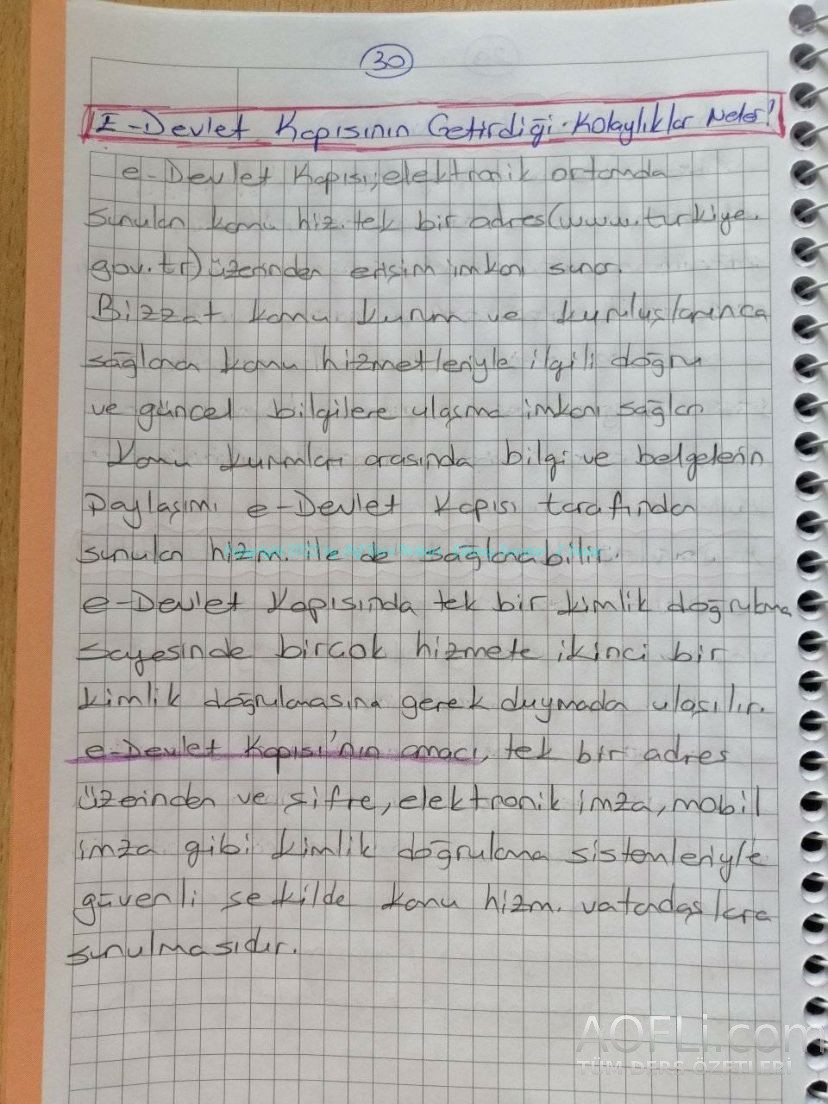 30
E-Devlet Kapısının Getirdiği Kolaylıklar Neler?
e-Devlet Kapısı; elektronik ortamda
sunulan kamu hiz. tek bir adres(www.turkiye.
gov.tr) üzerinden erişim imkanı sunar.
Bizzat kamu kurum ve kuruluşlarınca
sağlanan kamu hizmetleriyle ilgili doğru
ve güncel bilgilere ulaşma imkanı sağlar
Kamu kurumları arasında bilgi ve belgelerin
Paylaşımı e-Devlet Kapısı tarafından
sunulan hizm. ile de sağlanabilir.
e-Devlet Kapısında tek bir kimlik doğrulama
sayesinde birçok hizmete ikinci bir
kimlik doğrulamasına gerek duymada ulaşılır.
e-Devlet Kapısı'nın amacı, tek bir adres
üzerinden ve şifre, elektronik imza, mobil
imza gibi kimlik doğrulama sistemleriyle
güvenli şekilde kamu hizm. vatadaşlara
sunulmasıdır.
AOFLi.com
TÜM DERS ÖZETLERİ